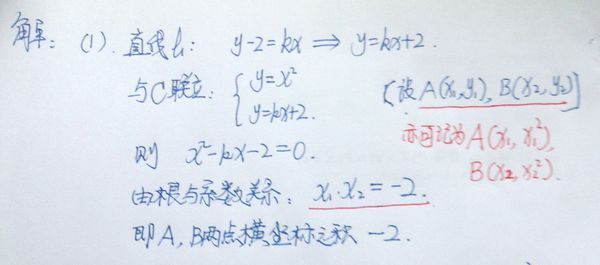 解：(1). 直线l₁： y-2=kx ⟹ y=kx+2.
与C联立：{ y=x²
y=kx+2.
[设A(x₁,y₁), B(x₂,y₂)]
亦可记为A(x₁,x₁²),
B(x₂,x₂²).
则 x²-kx-2=0.
由根与系数关系：x₁·x₂=-2.
即A,B两点横坐标之积 -2.